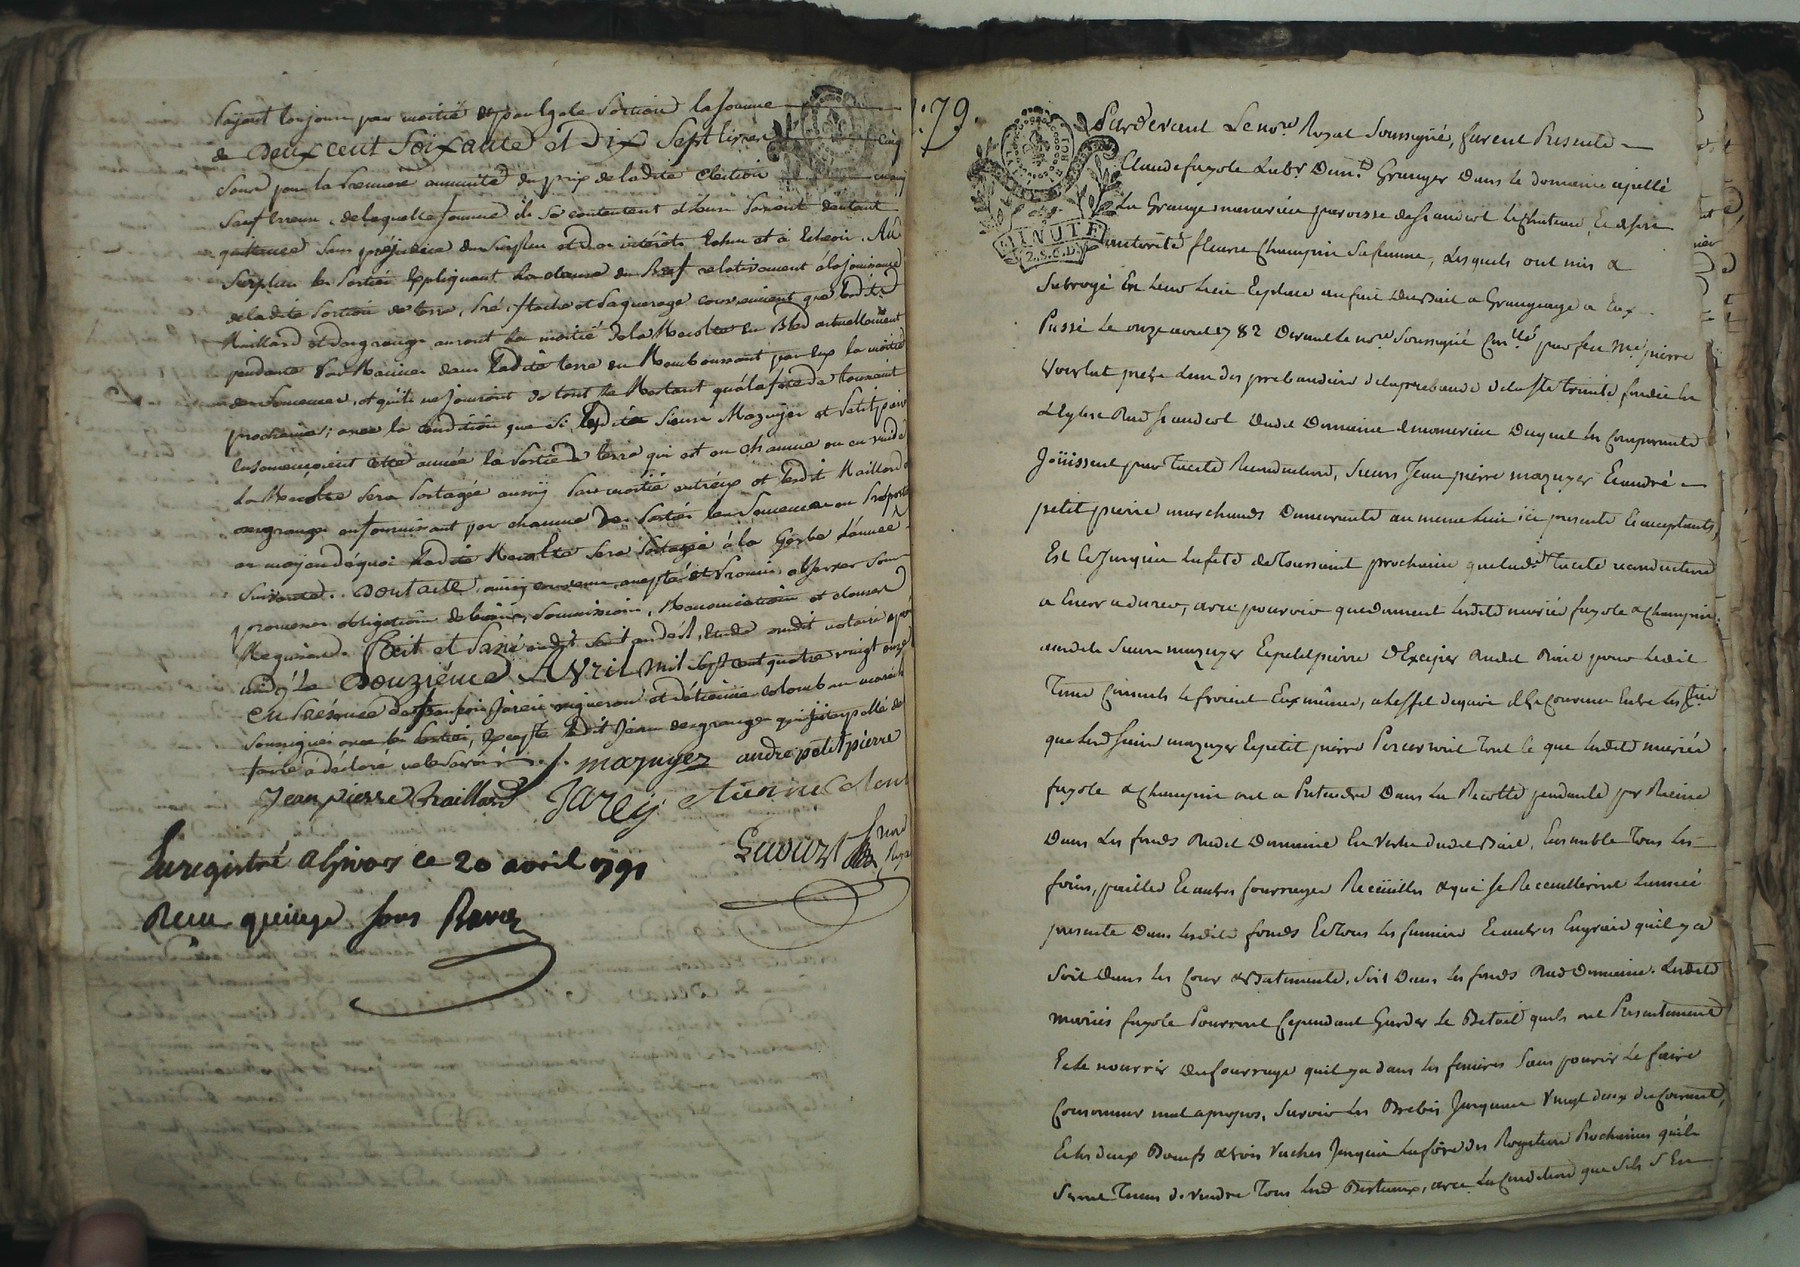 payant toujours par moitié et par Egale portion la somme
de Deux cent soixante et Dix Sept livres cinq
sous pour la premiere annuité du prix de ladite Election
sauf erreur, de laquelle somme ils se contentent d'heure
quittance sans préjudice du surplus et des intérêts Echus et à Echeoir. Au
surplus les parties Expliquant la clause du Bref relativement à la jouissance
de ladite portion de terre, pré, et paquerage conviennent que lesdits
Maillard et desgrange auront la moitié de la Recolte en Bled actuellement
pendante par Racines dans ladite terre en Remboursant par Eux la moitié
des semences, et qu'ils ne jouiront de tout le Restant qu'à la fête de toussaint
prochaine; avec la condition que si lesdits sieurs Mazuyer et petitpierre
ensemencoient cette année la partie de terre qui est en chaume ou en vuide
la Recolte sera partagée aussy par moitié entr'eux et lesdits Maillard
desgrange en fournissant par chacune des parties les semences en proportion
au moyen de quoi ladite Recolte sera partagée à la Gerbe l'année
suivante. dont acte, ainsy convenu, accepté et promis observer par
promesses obligation de biens, soumissions, Renonciations et clauses
Requises. Fait et passé audit saint andéol, Etude dudit notaire après
midy le Douzième Avril mil sept cent quatre vingt onze
En présence de françois Jarey vigneron et d'étienne colomb
soussignés avec les parties, Excepté ledit Jean desgrange qui interpellé de
faire a déclaré ne le savoir.
j. p. mazuyer andre petitpierre
Jean pierre Maillard Jarey etienne Colomb
Enregistré a Givors ce 20 avril 1791
Recu quinze sous
79.
MINUTE
2.S.6.D.
Pardevant Le no.re Royal Soussigné, furent Presents
Claude fayole Lab.r Dem.t Granger Dans le domaine apellé
La Grange parroisse de st andeol le Chateau, Et de son
autorité fleurie Champin sa femme, Lesquels ont mis &
Subrogé En Leur Lieu Et place au fait du Bail a Grangeage a Eux
Passé Le onze avril 1782 Devant le no.re Soussigné par feu M.e pierre
pretre L'un des prebandiers de la prebande de la ste trinité fondée En
L'Eglise dud st andeol Dudit Domaine Duquel les Comparants
Joüissent par tacite Reconduction, Sieurs Jean pierre mazuyer Et andré
petit pierre marchands Demeurants au meme Lieu ici presents Et acceptants,
Et Ce Jusqu'a La fete de Toussaint prochaine que lad.e tacite reconduction
a Encor a durer, avec pouvoir que donnent Lesdits mariés fayole & Champin
auxdits Sieurs mazuyer Et petitpierre D'Exciper dudit Bail pour Ledit
Tems Comme ils le feroient Eux mêmes, a L'effet de quoi il Est Convenu Entre les parties
que Lesd sieurs mazuyer Et petit pierre Percevront Tout Ce que Lesdits mariés
fayole & Champin ont a Pretendre Dans La Recolte pendante par Racine
Dans Les fonds dudit Domaine En Vertu dudit Bail, Ensemble Tous les
foins, pailles Et autres fourrages Recüeillis & qui se Recueilleront L'année
presente Dans lesdits fonds Et Tous les fumiers Et autres Engrais qu'il y a
Soit Dans Les Cours & Batiments, Soit Dans les fonds dud Domaine. Lesdits
mariés fayole Pourront Cependant Garder Le Betail qu'ils ont Presentement
Et le nourrir du fourrage qu'il y a dans les fenieres Sans pouvoir Le faire
Consommer mal apropos, Savoir Les Brebis Jusqu'au Vingt deux du Courant,
Et les deux Boeufs & trois Vaches Jusqu'a La foire des Rogations Prochaines qu'ils
Seront Tenus de vendre Tous Lesd Bestiaux, avec La Condition que S'ils S'En